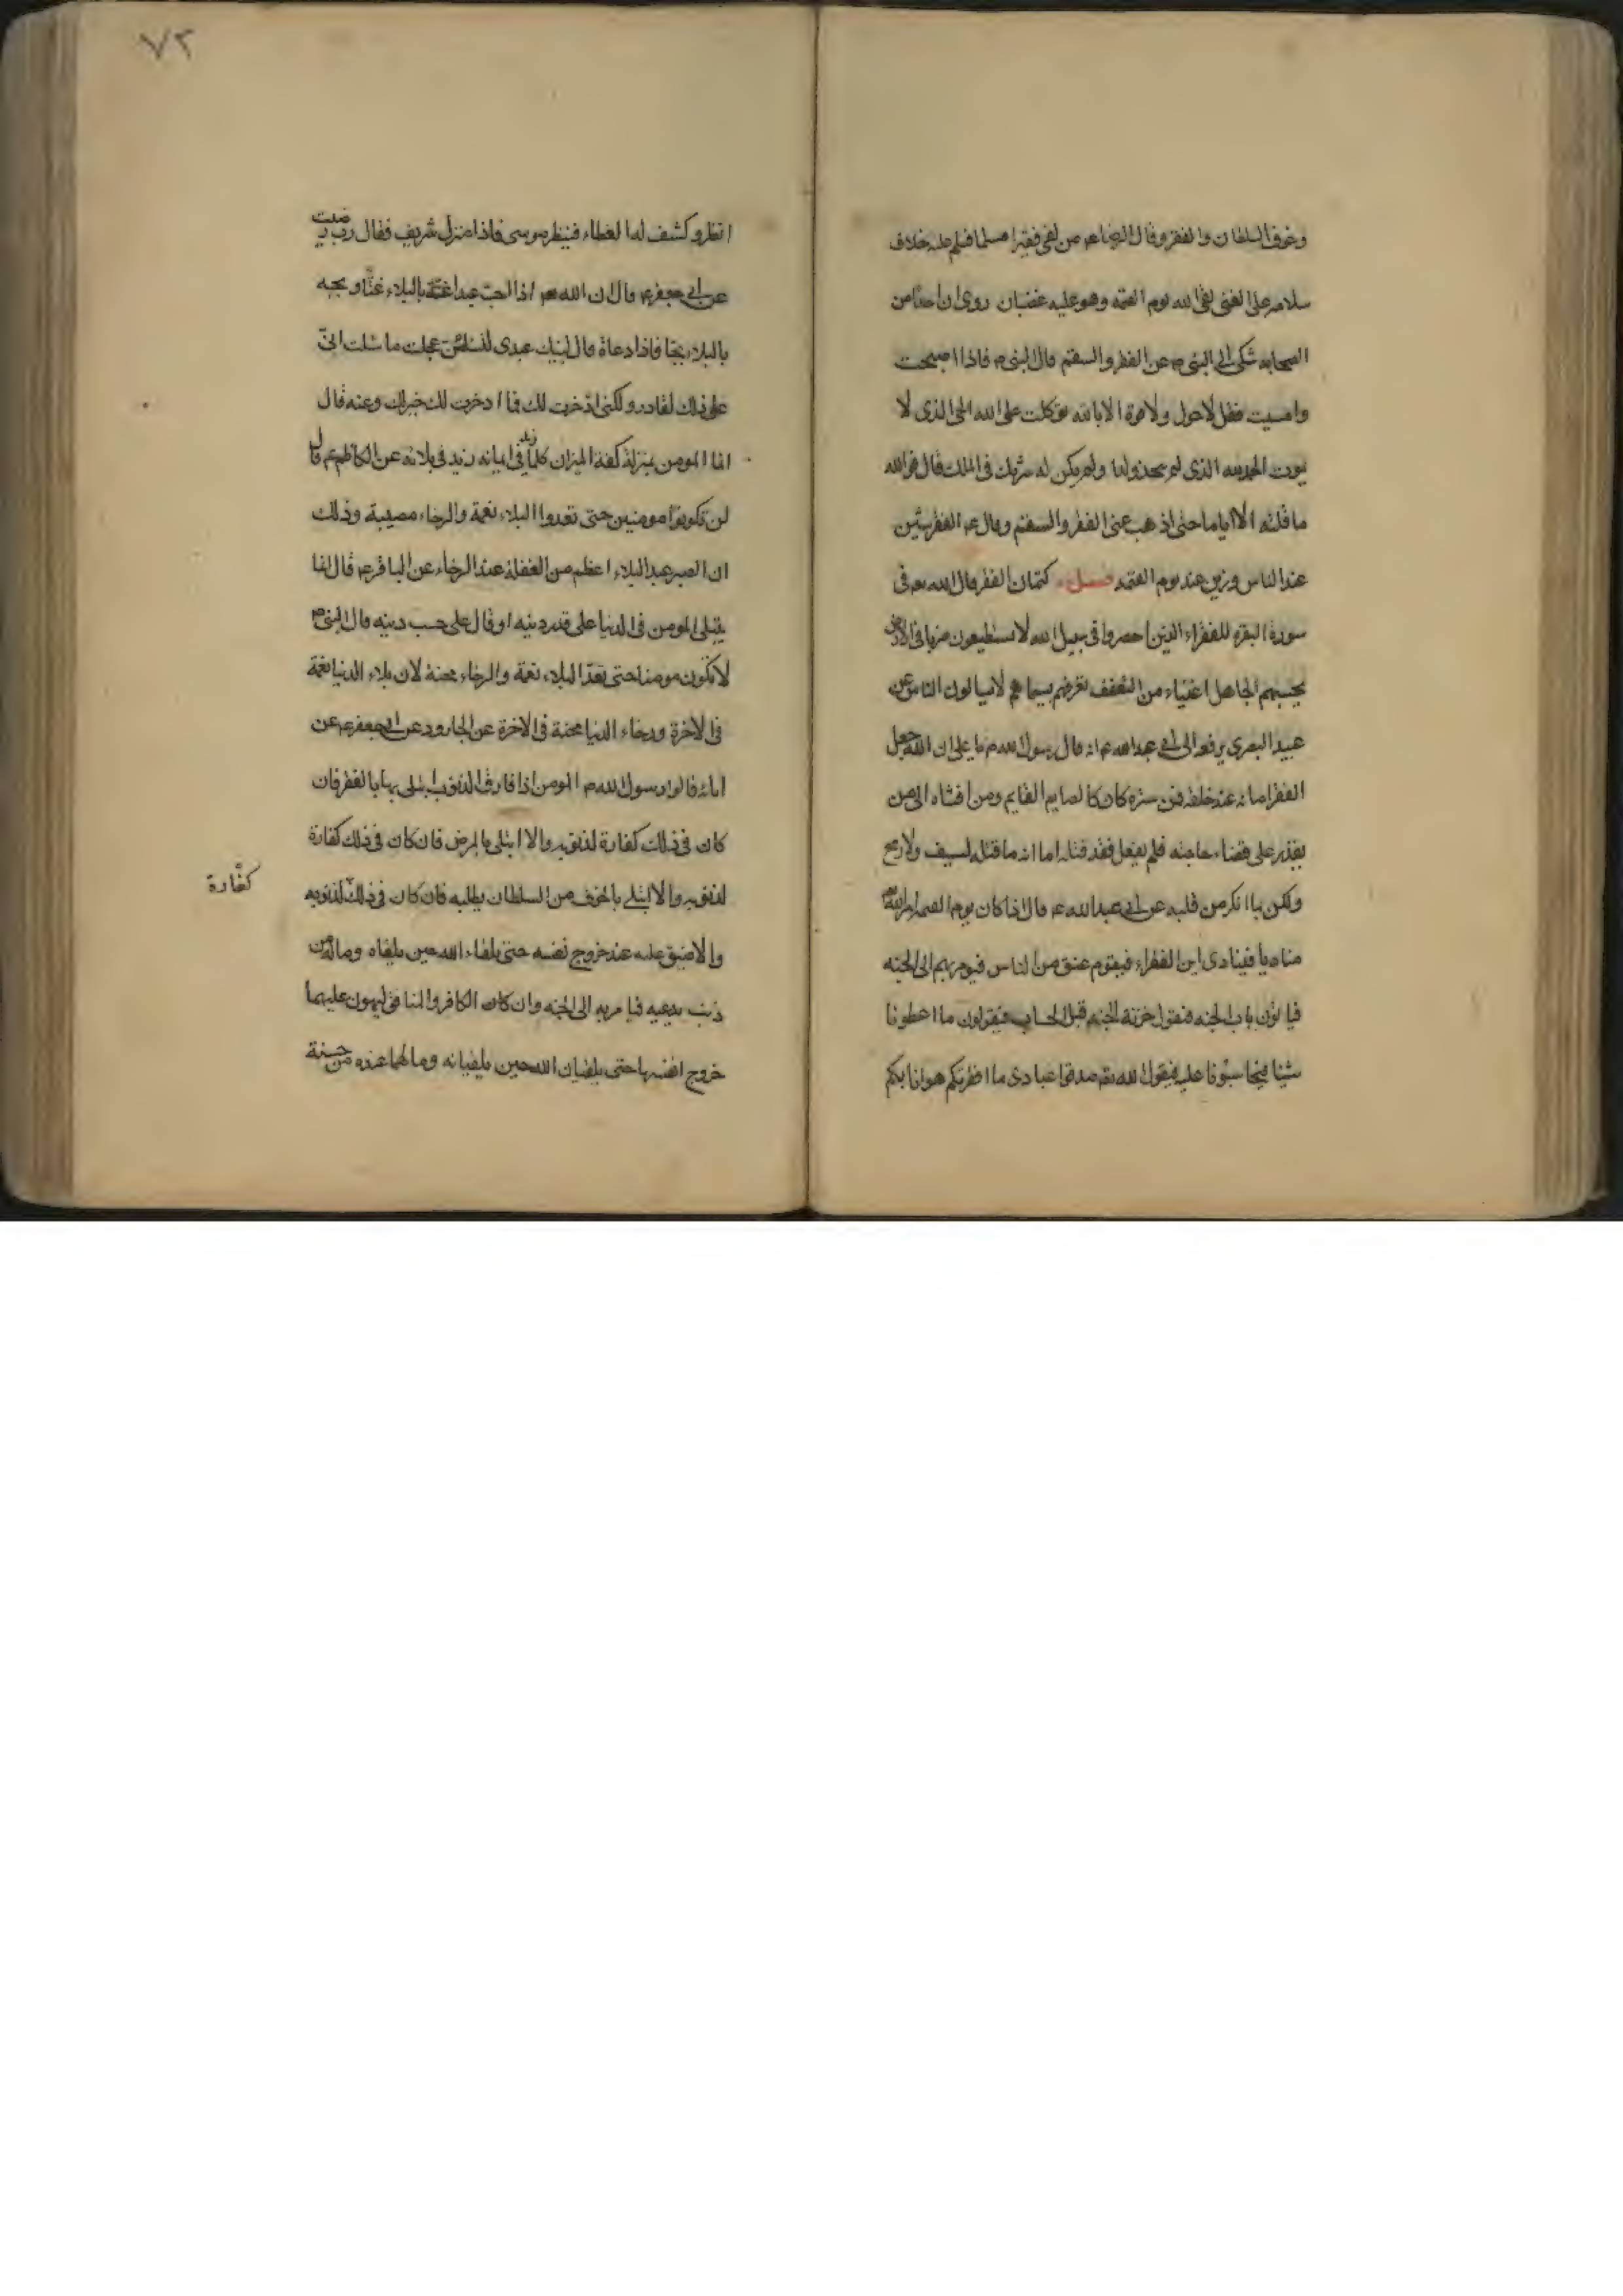 وخوف السلطان والفقر وقال الرضا عم من لقى فقيرا مسلما فسلم عليه خلاف
سلامه على الغنى لقى الله يوم القيمه وهو عليه غضبان روى ان احدا من
الصحابه شكى الى النبى ص عن الفقر والسقم قال النبى ص فاذا اصبحت
وامسيت فقل لا حول ولا قوة الا بالله توكلت على الله الحى الذى لا
يموت الحمد لله الذى لم يتخذ ولدا ولم يكن له شريك فى الملك قال فوالله
ما قلته الا اياما حتى اذهب عنى الفقر والسقم وقال عم الفقر شين
عند الناس وزين عند يوم القيمه فصل كتمان الفقر قال الله تعه فى
سورة البقره للفقراء الذين احصروا فى سبيل الله لا يستطيعون ضربا فى الارض
يحسبهم الجاهل اغنياء من التعفف تعرفهم بسيماهم لا يسالون الناس عن
عبيد البصرى يرفعه الى ابى عبد الله عم انه قال رسول الله ص يا على ان الله جعل
الفقر امانه عند خلقه فمن ستره كان كالصايم القايم ومن افشاه الى من
يقدر على قضاء حاجته فلم يفعل فقد قتله اما انه ما قتله لسيف ولا رمح
ولكن بما انكر من قلبه عن ابى عبد الله عم قال اذا كان يوم القيمه امر الله تعه
مناديا فينادى اين الفقراء فيقوم عنق من الناس فيومر بهم الى الجنه
فياتون باب الجنه فيقول خزنة الجنه قبل الحساب فيقولون ما اعطونا
شيئا فيحاسبونا عليه فيقول الله تعم صدقوا عبادى ما افقرتكم هوانا بكم
٧٢
انظر وكشف له الغطاء فينظر موسى فاذا منزل شريف فقال رب رضيت
عن ابى جعفر عم قال ان الله تعه اذا احب عبدا غته بالبلاء غتا و يجبه
بالبلاء بجا فاذا دعاه قال لبيك عبدى لئن عجلت ما سئلت انى
على ذلك لقادر ولكنى اذخرت لك فما ادخرت لك خير لك وعنه قال
انما المومن بمنزلة كفة الميزان كلما زيد فى ايمانه زيد فى بلائه عن الكاظم عم قال
لن تكونوا مومنين حتى تعدوا البلاء نعمة والرخاء مصيبة وذلك
ان الصبر عند البلاء اعظم من الغفلة عند الرخاء عن الباقر عم قال انما
يبتلى المومن فى الدنيا على قدر دينه او قال على حسب دينه قال النبى ص
لا تكون مومنا حتى تعد البلاء نعمة والرخاء محنة لان بلاء الدنيا نعمة
فى الاخرة ورخاء الدنيا محنة فى الاخرة عن الجارود عن ابى جعفر عم عن
ابائه قالوا رسول الله ص المومن اذا قارف الذنوب ابتلى بها بالفقر فان
كان فى ذلك كفارة لذنوبه والا ابتلى بالمرض فان كان فى ذلك كفارة
لذنوبه والا ابتلى بالخوف من السلطان يطلبه فان كان فى ذلك لذنوبه
كفارة
والا ضيق عليه عند خروج نفسه حتى يلقاه الله حين يلقاه وماله من
ذنب يدعيه فيامر به الى الجنه وان كان الكافر والمنافق ليهون عليهما
خروج انفسهما حتى يلقيان الله حين يلقيانه وما لهما عنده من حسنة